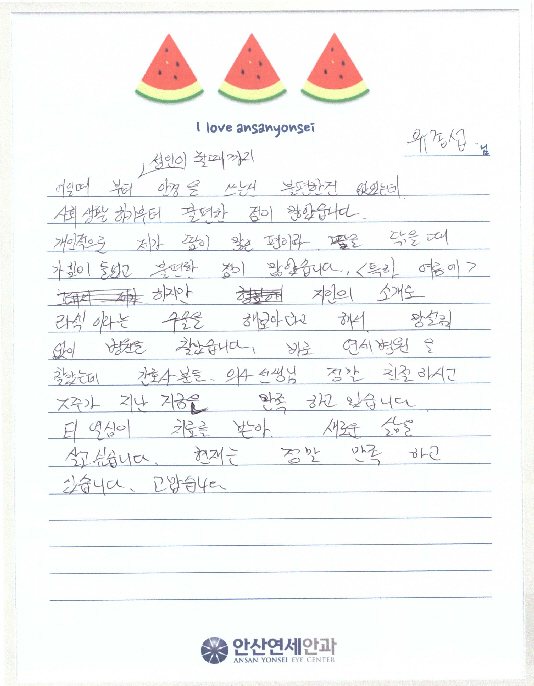 I love ansanyonsei
유경섭 님
성인이 될때까지
어릴때 부터 안경을 쓰는데 불편한건 없었는데
사회생활 하기부터 불편한 점이 많았습니다.
개인적으로 제가 땀이 많은 편이라 땀을 닦을 때
가 많이 불편한 점이 많았습니다. <특히 여름에>
하지만 지인의 소개로
라식 이라는 수술을 해보아라고 해서 망설임
없이 병원을 찾았습니다. 바로 연세병원을
찾았는데 간호사분들, 의사선생님 정말 친절하시고
X주가 지난 지금은 만족 하고 있습니다.
더 열심히 치료를 받아. 새로운 삶을
살고 싶습니다. 현재는 정말 만족 하고
있습니다. 고맙습니다
안산연세안과
ANSAN YONSEI EYE CENTER